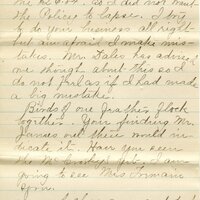 as I did not want
the Policy to lapse. I try
to do your business all right
but am afraid I make mis-
takes. Mrs Sales has
me though about this so I
do not feel as if I had made
a big mistake.
Birds of one feather flock
together. Your finding Mr.
James out there would in-
dicate it. Have you seen
the Mc yet. I am
going to see Miss
soon.